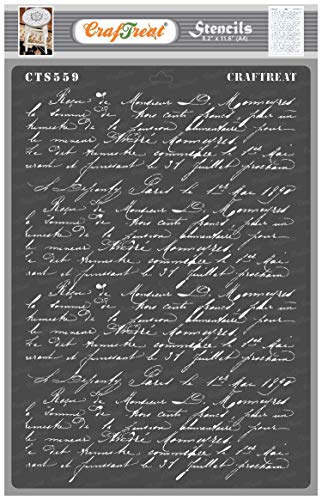 CrafTreat
Stencils
8.2" x 11.6" (A4)
CTS559 CRAFTREAT
Reçu de Monsieur D.
la somme de trois cents francs pour un
trimestre de la pension alimentaire pour
le mineur André
ce dit trimestre commence le 1er Mai
et finissant le 31 juillet prochain
Paris le 1er Mai 1890
Reçu de Monsieur D.
la somme de trois cents francs pour un
trimestre de la pension alimentaire pour
le mineur André
ce dit trimestre commence le 1er Mai
et finissant le 31 juillet prochain
Reçu de Monsieur D.
la somme de trois cents francs pour un
trimestre de la pension alimentaire pour
le mineur André
ce dit trimestre commence le 1er Mai
et finissant le 31 juillet prochain
Paris le 1er Mai 1890
Reçu de Monsieur D.
la somme de trois cents francs pour un
trimestre de la pension alimentaire pour
le mineur André
ce dit trimestre commence le 1er Mai
et finissant le 31 juillet prochain